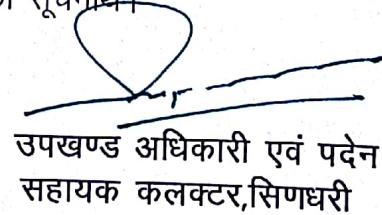 सूचनार्थ।
उपखण्ड अधिकारी एवं पदेन
सहायक कलक्टर,सिणधरी